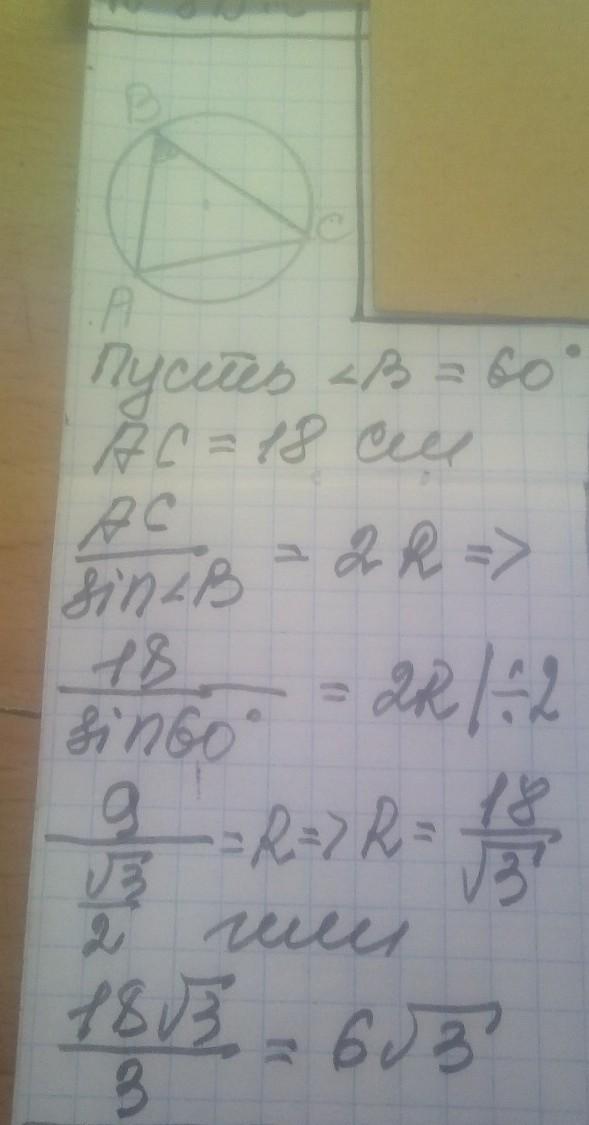 B
C
A
Пусть ∠B = 60°
AC = 18 см
AC / sin∠B = 2R =>
18 / sin60° = 2R | ÷2
9 / (√3 / 2) = R => R = 18 / √3
или
18√3 / 3 = 6√3